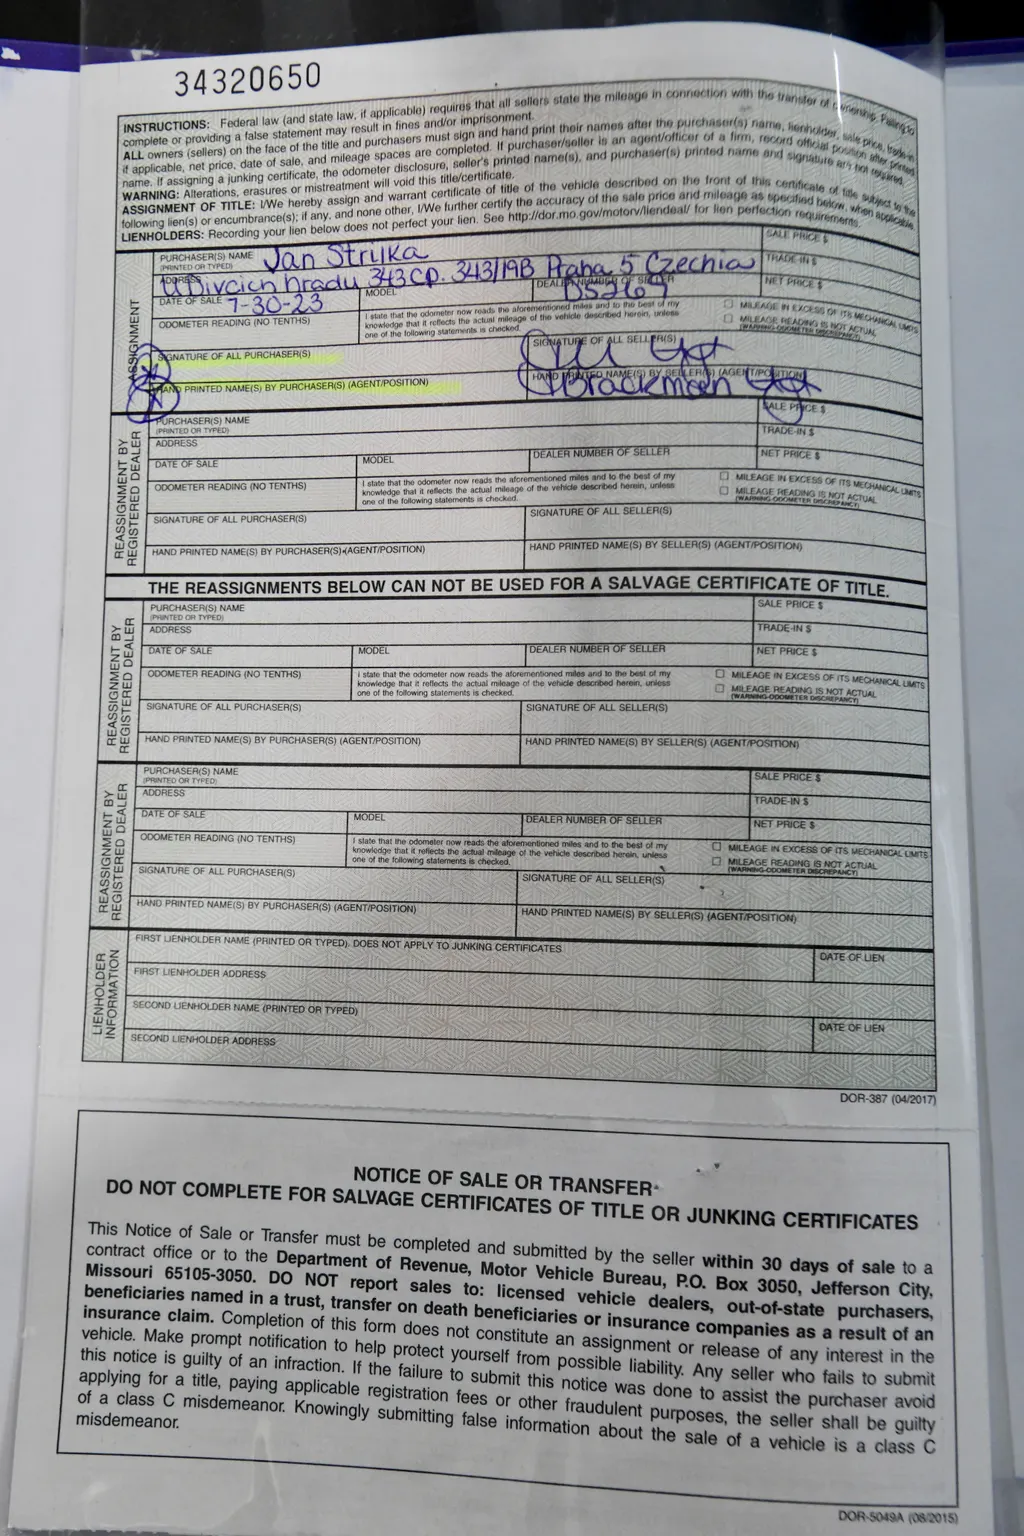 34320650
INSTRUCTIONS: Federal law (and state law, if applicable) requires that all sellers state the mileage in connection with the transfer of ownership. Failing to
complete or providing a false statement may result in fines and/or imprisonment.
ALL owners (sellers) on the face of the title and purchasers must sign and hand print their names after the purchaser(s) name, lienholder, sale price, trade-in
if applicable, net price, date of sale, and mileage spaces are completed. If purchaser/seller is an agent/officer of a firm, record official position after printed
name. If assigning a junking certificate, the odometer disclosure, seller's printed name(s), and purchaser(s) printed name and signature are not required.
WARNING: Alterations, erasures or mistreatment will void this title/certificate.
ASSIGNMENT OF TITLE: I/We hereby assign and warrant certificate of title of the vehicle described on the front of this certificate of title subject to the
following lien(s) or encumbrance(s); if any, and none other, I/We further certify the accuracy of the sale price and mileage as specified below, when applicable.
LIENHOLDERS: Recording your lien below does not perfect your lien. See http://dor.mo.gov/motorv/liendeal/ for lien perfection requirements.
ASSIGNMENT
PURCHASER(S) NAME Jan Strilka SALE PRICE $
(PRINTED OR TYPED) TRADE-IN $
ADDRESS U Divcich hradu 343 cp. 343/19B Praha 5 Czechia NET PRICE $
DATE OF SALE 7-30-23 MODEL DEALER NUMBER OF SELLER
ODOMETER READING (NO TENTHS) I state that the odometer now reads the aforementioned miles and to the best of my
knowledge that it reflects the actual mileage of the vehicle described herein, unless
one of the following statements is checked.
MILEAGE IN EXCESS OF ITS MECHANICAL LIMITS
MILEAGE READING IS NOT ACTUAL
(WARNING-ODOMETER DISCREPANCY)
SIGNATURE OF ALL PURCHASER(S) SIGNATURE OF ALL SELLER(S)
HAND PRINTED NAME(S) BY PURCHASER(S) (AGENT/POSITION) HAND PRINTED NAME(S) BY SELLER(S) (AGENT/POSITION)
REASSIGNMENT BY
REGISTERED DEALER
PURCHASER(S) NAME SALE PRICE $
(PRINTED OR TYPED)
ADDRESS TRADE-IN $
DATE OF SALE MODEL DEALER NUMBER OF SELLER NET PRICE $
ODOMETER READING (NO TENTHS) I state that the odometer now reads the aforementioned miles and to the best of my
knowledge that it reflects the actual mileage of the vehicle described herein, unless
one of the following statements is checked.
MILEAGE IN EXCESS OF ITS MECHANICAL LIMITS
MILEAGE READING IS NOT ACTUAL
(WARNING-ODOMETER DISCREPANCY)
SIGNATURE OF ALL PURCHASER(S) SIGNATURE OF ALL SELLER(S)
HAND PRINTED NAME(S) BY PURCHASER(S) (AGENT/POSITION) HAND PRINTED NAME(S) BY SELLER(S) (AGENT/POSITION)
THE REASSIGNMENTS BELOW CAN NOT BE USED FOR A SALVAGE CERTIFICATE OF TITLE.
REASSIGNMENT BY
REGISTERED DEALER
PURCHASER(S) NAME SALE PRICE $
(PRINTED OR TYPED)
ADDRESS TRADE-IN $
DATE OF SALE MODEL DEALER NUMBER OF SELLER NET PRICE $
ODOMETER READING (NO TENTHS) I state that the odometer now reads the aforementioned miles and to the best of my
knowledge that it reflects the actual mileage of the vehicle described herein, unless
one of the following statements is checked.
MILEAGE IN EXCESS OF ITS MECHANICAL LIMITS
MILEAGE READING IS NOT ACTUAL
(WARNING-ODOMETER DISCREPANCY)
SIGNATURE OF ALL PURCHASER(S) SIGNATURE OF ALL SELLER(S)
HAND PRINTED NAME(S) BY PURCHASER(S) (AGENT/POSITION) HAND PRINTED NAME(S) BY SELLER(S) (AGENT/POSITION)
REASSIGNMENT BY
REGISTERED DEALER
PURCHASER(S) NAME SALE PRICE $
(PRINTED OR TYPED)
ADDRESS TRADE-IN $
DATE OF SALE MODEL DEALER NUMBER OF SELLER NET PRICE $
ODOMETER READING (NO TENTHS) I state that the odometer now reads the aforementioned miles and to the best of my
knowledge that it reflects the actual mileage of the vehicle described herein, unless
one of the following statements is checked.
MILEAGE IN EXCESS OF ITS MECHANICAL LIMITS
MILEAGE READING IS NOT ACTUAL
(WARNING-ODOMETER DISCREPANCY)
SIGNATURE OF ALL PURCHASER(S) SIGNATURE OF ALL SELLER(S)
HAND PRINTED NAME(S) BY PURCHASER(S) (AGENT/POSITION) HAND PRINTED NAME(S) BY SELLER(S) (AGENT/POSITION)
LIENHOLDER
INFORMATION
FIRST LIENHOLDER NAME (PRINTED OR TYPED). DOES NOT APPLY TO JUNKING CERTIFICATES DATE OF LIEN
FIRST LIENHOLDER ADDRESS
SECOND LIENHOLDER NAME (PRINTED OR TYPED) DATE OF LIEN
SECOND LIENHOLDER ADDRESS
DOR-387 (04/2017)
NOTICE OF SALE OR TRANSFER
DO NOT COMPLETE FOR SALVAGE CERTIFICATES OF TITLE OR JUNKING CERTIFICATES
This Notice of Sale or Transfer must be completed and submitted by the seller within 30 days of sale to a
contract office or to the Department of Revenue, Motor Vehicle Bureau, P.O. Box 3050, Jefferson City,
Missouri 65105-3050. DO NOT report sales to: licensed vehicle dealers, out-of-state purchasers,
beneficiaries named in a trust, transfer on death beneficiaries or insurance companies as a result of an
insurance claim. Completion of this form does not constitute an assignment or release of any interest in the
vehicle. Make prompt notification to help protect yourself from possible liability. Any seller who fails to submit
this notice is guilty of an infraction. If the failure to submit this notice was done to assist the purchaser avoid
applying for a title, paying applicable registration fees or other fraudulent purposes, the seller shall be guilty
of a class C misdemeanor. Knowingly submitting false information about the sale of a vehicle is a class C
misdemeanor.
DOR-5049A (08/2015)